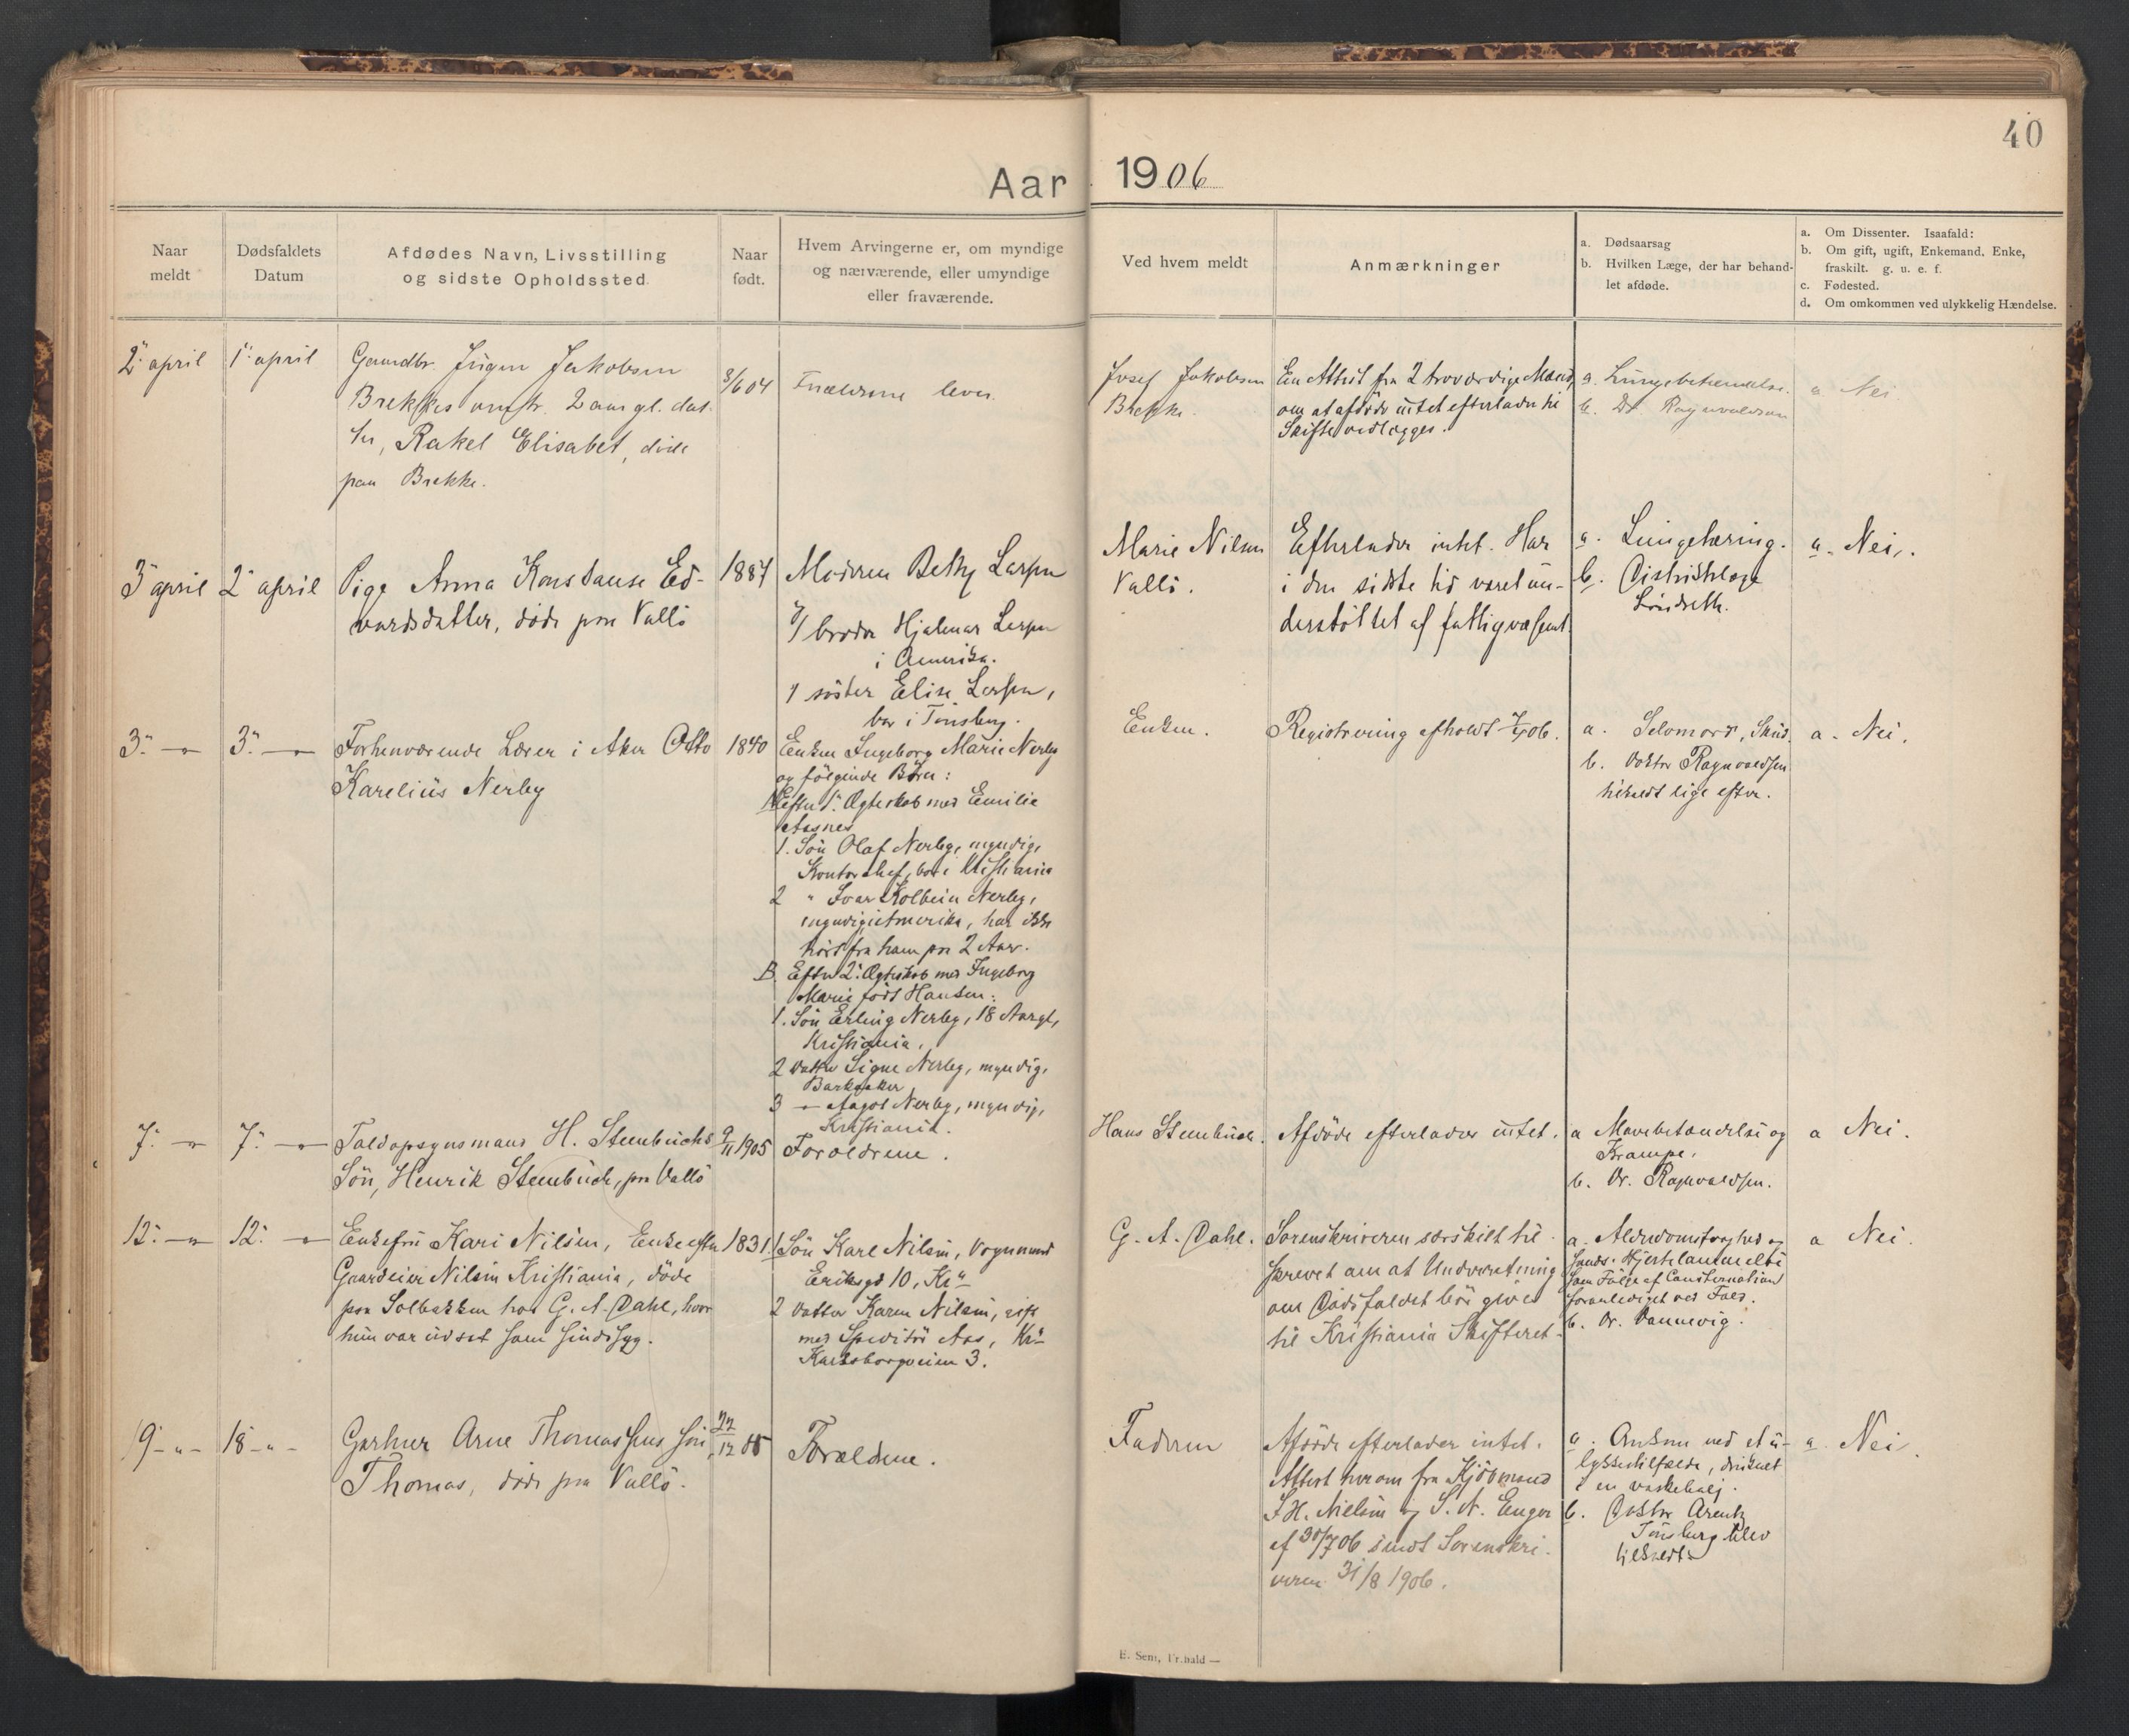 40
Aar 1906
Naar
meldt
Dødsfaldets
Datum
Afdødes Navn, Livsstilling
og sidste Opholdssted.
Naar
født.
Hvem Arvingerne er, om myndige
og nærværende, eller umyndige
eller fraværende.
Ved hvem meldt
Anmærkninger
a. Dødsaarsag
b. Hvilken Læge, der har behand-
let afdøde.
a. Om Dissenter. Isaafald:
b. Om gift, ugift, Enkemand, Enke,
fraskilt. g. u. e. f.
c. Fødested.
d. Om omkommen ved ulykkelig Hændelse.
2' april
1' april
Gaardbr. Jakobsen
Brekkes 2 aar gl. dat-
ter, Rakel Elisabet, døde
paa Brekke.
3/6 04
Forældrene lever.
Josef Jakobsen
Brekke.
En Attest fra 2 troværdige Mænd,
om at afdøde intet efterlader til
Skifte vedlægges.
a. Lungebetændelse.
b. Dr. Ragnvaldsen
a Nei.
3' april
2' april
Pige Anna Konstanse Ed-
vardsdatter, døde paa Vallö
1887
Moderen Betzy Larsen
1 broder Hjalmar Larsen
i Amerika.
1 söster Elise Larsen,
bor i Tönsberg.
Marie Nilsen
Vallö.
Efterlader intet. Har
i den sidste tid været un-
derstöttet af fattigvæsenet.
a. Lungetæring.
b. Distriktslæge
Lindseth.
a. Nei.
3' — " —
3' — " —
Forhenværende Lærer i Aker Otto
Karelius Nerby
1840
Enken Ingeborg Marie Nerby
og følgende Børn:
A. Efter 1' Ægteskab med Emilie
Aasnes
1. Sön Olaf Nerby, myndig,
Kontorchef, bor i Kristiania
2 " Ivar Kolbein Nerby,
myndig i Amerika, har ikke
hört fra ham paa 2 Aar.
B. Efter 2' Ægteskab med Ingeborg
Marie född Hansen:
1. Sön Erling Nerby, 18 Aar gl,
Kristiania.
2 datter Signe Nerby, myndig,
Barkaaker
3 — " — Aagot Nerby, myndig,
Kristiania.
Enken.
Registrering afholdt 06.
a. Selvmord, Skud.
b. Doktor Ragnvaldsen
tilkaldt lige efter.
a. Nei.
7' — " —
7' — " —
Toldopsynsmand H. Steenbuchs
Sön, Henrik Steenbuch, paa Vallö
9/11 1905
Forældrene.
Hans Steenbuch.
Afdöde efterlader intet.
a Mavebetændelse og
Krampe.
b. Dr. Ragnvaldsen.
a Nei.
12' — " —
12' — " —
Enkefru Kari Nilsen, Enke efter
Gaardeier Nilsen Kristiania, döde
paa Solbakken hos G. A. Dahl, hvor
hun var udsat som sindssyg.
1831
1 Sön Karl Nilsen, Vognmand
Eriksgd 10, Kr'a
2 datter Karen Nilsen, gift
med Speditör Aas, Kr'a
Karlsborgveien 3.
G. A. Dahl.
Sorenskriveren særskilt til-
skrevet om at Underretning
om Dödsfaldet bör gives
til Kristiania Skifteret.
a. Alderdomssvaghed og
Sinds. Hjertelammelse
som Fölge af Consternation
foranlediget ved Fald.
b. Dr. Dannevig.
a Nei.
19 - " -
18 - " -
Gartner Arne Thomassens sön,
Thomas, döde paa Vallö.
22/12 05
Forældrene.
Faderen
Afdöde efterlader intet.
Attest herom fra Kjöbmand
J. H. Nielsen og S. N. Enger
af 30/7 06 sendt Sorenskri-
veren 31/8 1906.
a. Omkom ved et u-
lykkestilfælde, druknet
i en vaskebalj.
b. Doktor Arentz
Tönsberg blev
tilkaldt
a. Nei.
E. Sem, Fr.hald —